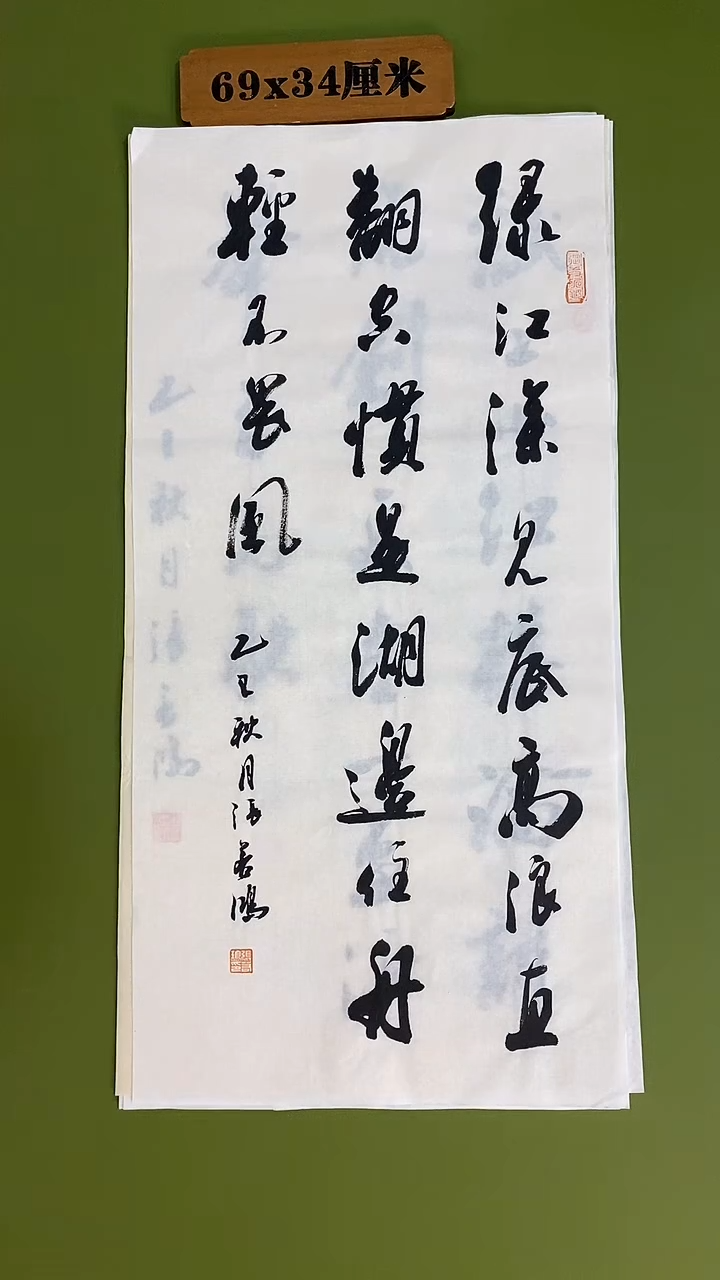 69x34厘米
绿江深见底高浪直
翻空惯是湖邊住舟
輕不畏風
乙巳秋月张若鸿